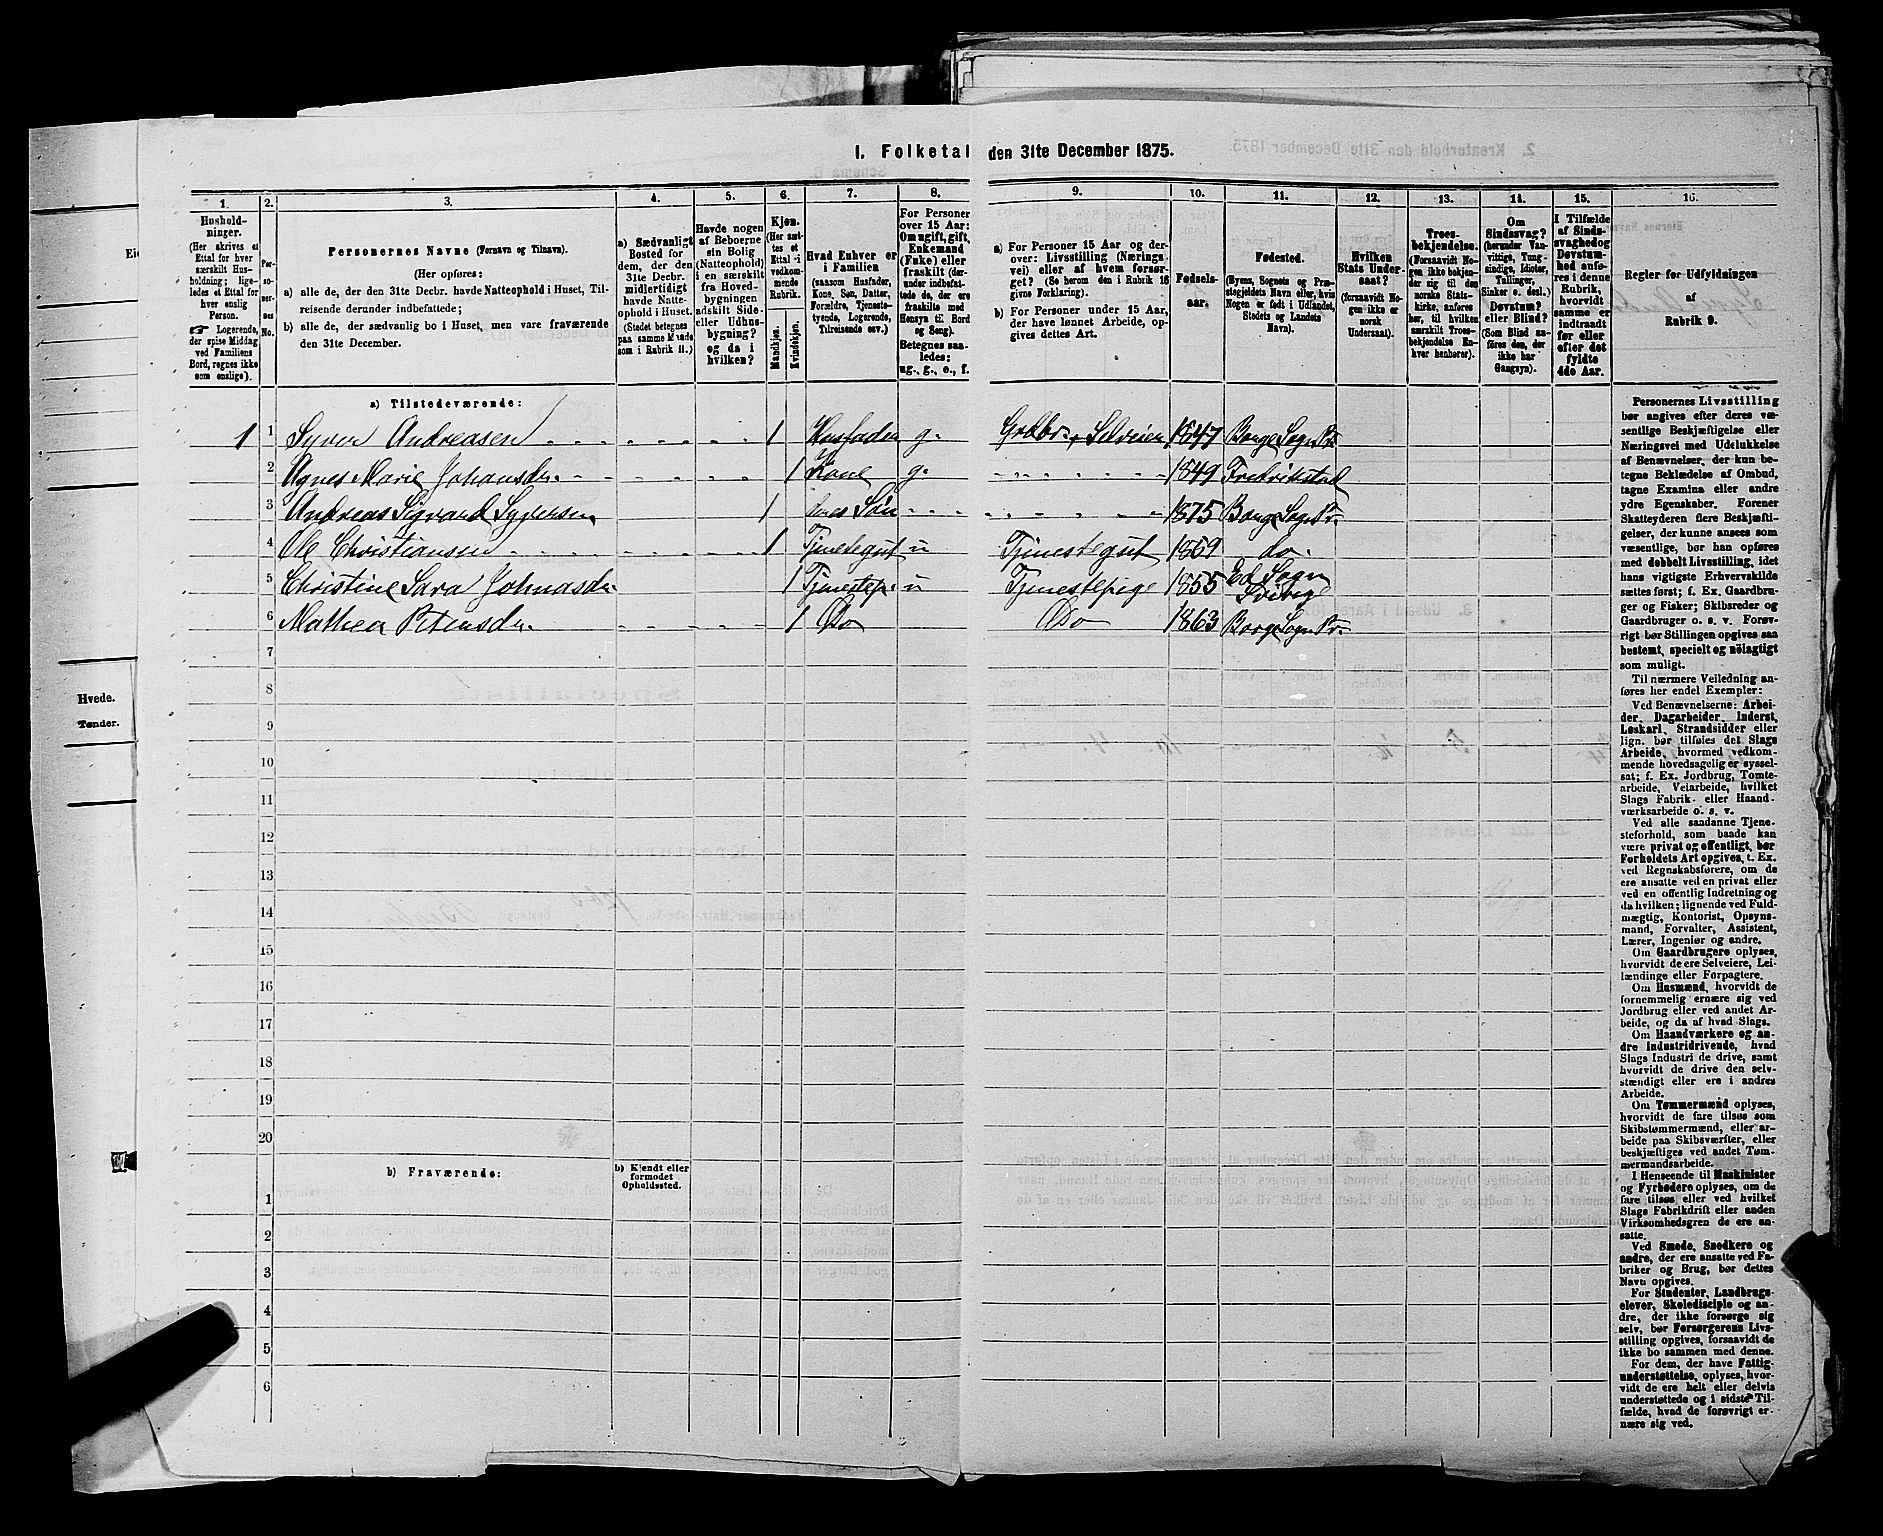 I. Folketal den 31te December 1875.
1. 2. 3. 4. 5. 6. 7. 8. 9. 10. 11. 12. 13. 14. 15. 16.
Husholdninger.
(Her skrives et
Ettal for hver
særskilt Husholdning;
ligeledes et Ettal for
hver enslig
Person.
☞ Logerende,
der spise Middag
ved Familiens
Bord, regnes ikke
som enslige).
Personernes No.
Personernes Navne (Fornavn og Tilnavn).
(Her opføres:
a) alle de, der den 31te Decbr. havde Natteophold i Huset, Tilreisende derunder indbefattede;
b) alle de, der sædvanlig bo i Huset, men vare fraværende
den 31te December.
a) Sædvanligt
Bosted for
dem, der den
31te Decbr.
midlertidigt
havde Natteophold i Huset.
(Stedet betegnes
paa samme Maade
som i Rubrik 11.)
Havde nogen
af Beboerne
sin Bolig
(Natteophold)
i en særskilt
fra Hovedbygningen
adskilt Side-
eller Udhusbygning?
og da i
hvilken?
Kjøn.
(Her sættes et
Ettal i
vedkommende
Rubrik.)
Mandkjøn.
Kvindekjøn.
Hvad Enhver er
i Familien
(saasom Husfader,
Kone, Søn, Datter,
Forældre, Tjenestetyende, Logerende,
Tilreisende osv.)
For Personer
over 15 Aar:
Om ugift, gift,
Enkemand
(Enke) eller
fraskilt (derunder indbefattede de, der ere
fraskilte med
Hensyn til Bord
og Seng).
Betegnes saaledes:
ug., g., e., f.
a) For Personer 15 Aar og derover: Livsstilling (Næringsvei) eller af hvem forsørget? (Se herom den i Rubrik 16
givne Forklaring).
b) For Personer under 15 Aar,
der have lønnet Arbeide, opgives dettes Art.
Fødselsaar.
Fødested.
(Byens, Sognets og Præstegjeldets Navn eller, hvis
Nogen er født i Udlandet,
Stedets og Landets
Navn).
Hvilken
Stats Undersaat?
(forsaavidt Nogen ikke er
norsk
Undersaat).
Troesbekjendelse.
(Forsaavidt Nogen ikke bekjender sig til den
norske Statskirke, anføres
her, til hvilken
særskilt Troesbekjendelse Enhver henhører).
Om
Sindssvag?
(herunder Vanvittige, Tungsindige, Idioter,
Tullinger,
Sinker o. desl.)
Døvstum?
eller Blind?
(Som Blind anføres den, der
ikke har
Gangsyn).
I Tilfælde
af Sindssvaghed og
Døvstumhed anføres i denne
Rubrik,
hvorvidt
samme er
indtraadt
før eller
efter det
fyldte
4de Aar.
Regler for Udfyldningen
af
Rubrik 9.
a) Tilstedeværende:
1 1 Syver Andreasen 1 Husfader g. Grdbr. Selveier 1847 Borge Sogn Pr.
2 Agnes Marie Johansdr. 1 Kone g. 1849 Fredrikstad
3 Andreas Sigvard Syversen 1 deres Søn 1875 Borge Sogn Pr.
4 Ole Christiansen 1 Tjenestegut u Tjenestegut 1859 do.
5 Christine Sara Johnasdr 1 Tjenestep. u Tjenestepige 1855 Ed Sogn
6 Mathea Petersdr. 1 Do Do 1863 Borge Sogn Pr.
7
8
9
10
11
12
13
14
15
16
17
18
19
20
b) Fraværende:
b) Kjendt eller
formodet
Opholdssted.
1
2
3
4
5
6
Personernes Livsstilling
bør angives efter deres væsentlige Beskjæftigelse eller
Næringsvei med Udelukkelse
af Benævnelser, der kun betegne Beklædelse af Ombud,
tagne Examina eller andre
ydre Egenskaber. Forener
Skatteyderen flere Beskjæftigelser, der kunne ansees som
væsentlige, bør han opføres
med dobbelt Livsstilling, idet
hans vigtigste Erhvervskilde
sættes først; f. Ex. Gaardbruger og Fisker; Skibsreder og
Gaardbruger o. s. v. Forøvrigt bør Stillingen opgives saa
bestemt, specielt og nøiagtigt
som muligt.
Til nærmere Veiledning anføres her endel Exempler:
Ved Benævnelserne: Arbeider, Dagarbeider, Inderst,
Løskarl, Strandsidder eller
lign. bør tilføies det Slags
Arbeide, hvormed vedkommende hovedsagelig er sysselsat; f. Ex. Jordbrug, Tomtearbeide, Veiarbeide, hvilket
Slags Fabrik- eller Haandværksarbeide o. s. v.
Ved alle saadanne Tjenesteforhold, som baade kan
være privat og offentligt, bør
Forholdets Art opgives, t. Ex.
ved Regnskabsførere, om de
ere ansatte ved en privat eller
ved en offentlig Indretning og
da hvilken; lignende ved Fuldmægtig, Kontorist, Opsynsmand, Forvalter, Assistent,
Lærer, Ingeniør og andre.
Om Gaardbrugere oplyses,
hvorvidt de ere Selveiere, Leilændinge eller Forpagtere.
Om Husmænd, hvorvidt de
fornemmelig ernære sig ved
Jordbrug eller ved andet Arbeide, og da af hvad Slags.
Om Haandværkere og andre Industridrivende, hvad
Slags Industri de drive, samt
hvorvidt de drive den selvstændigt eller ere i andres
Arbeide.
Om Tømmermænd oplyses,
hvorvidt de fare tilsøs som
Skibstømmermænd, eller arbeide paa Skibsværfter, eller
beskjæftiges ved andet Tømmermandsarbeide.
I Henseende til Maskinister
og Fyrbødere oplyses, om de
fare tilsøs eller ved hvilket
Slags Fabrikdrift eller anden
Virksomhedsgren de ere ansatte.
Ved Smede, Snedkere og
andre, der ere ansatte ved Fabriker og Brug, bør dettes
Navn opgives.
For Studenter, Landbrugselever, Skoledisciple og andre, der ikke forsørge sig
selv, bør Forsørgerens Livsstilling opgives, forsaavidt de
ikke bo sammen med denne.
For dem, der have Fattigunderstøttelse, oplyses, hvorvidt de ere helt eller delvis
understøttede og i sidste Tilfælde, hvad de forøvrigt ernære sig ved.
Hvede.
Tønder.